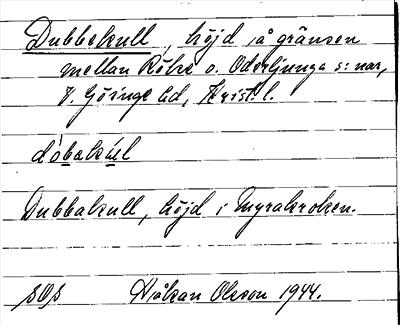 Dubbekull, höjd på gränsen
mellan Röke o. Oderljunga s:nar,
V. Göinge hd, Krist. l.
dòbakúl
Dubbakull, höjd i Myrakroken.
SOS Håkan Olsson 1944.